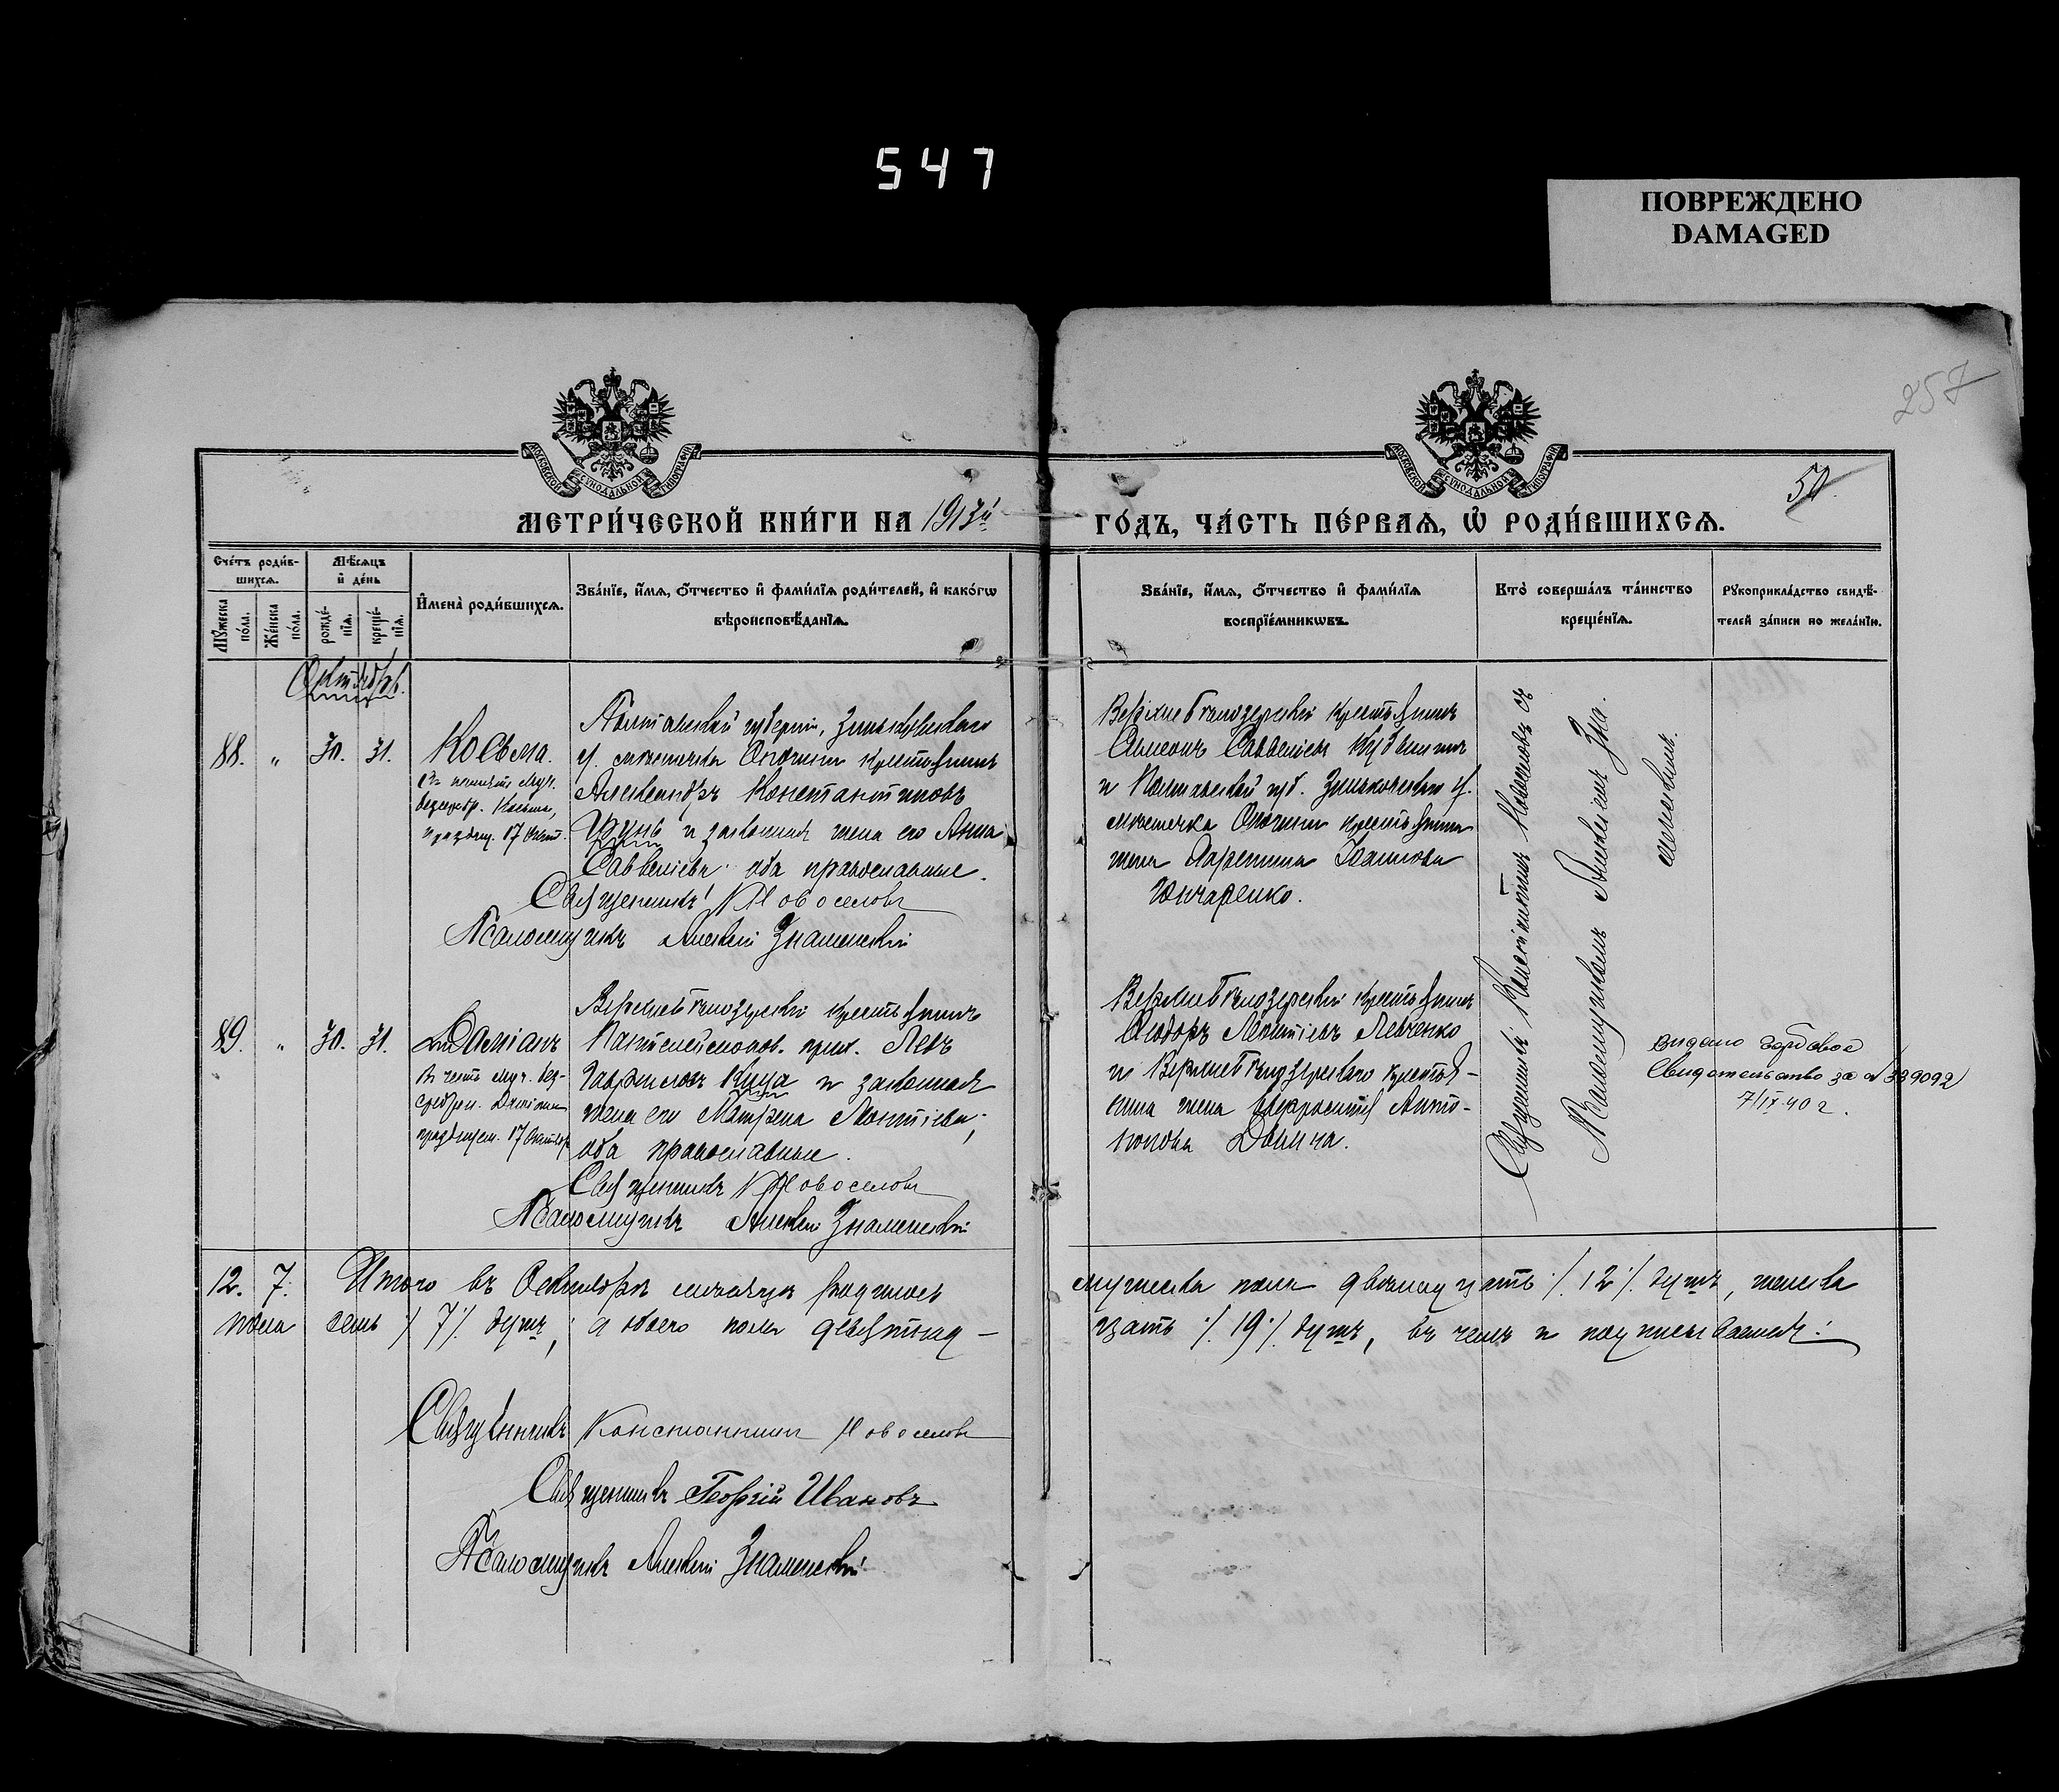 547
ПОВРЕЖДЕНО
DAMAGED
257
50.
МОСКОВСКОЙ СѴНОДАЛЬНОЙ ТИПОГРАФІИ
МОСКОВСКОЙ СѴНОДАЛЬНОЙ ТИПОГРАФІИ
МЕТРИ́ЧЕСКОЙ КНИ́ГИ НА 1913й
ГО́ДЪ, ЧА́СТЬ ПЕ́РВАѦ, Ѡ҆ РОДИ́ВШИХСѦ.
Сче́тъ роди́в-
шихсѧ.
Мꙋ́жеска по́ла.
Же́нска по́ла.
Мѣ́сѧцъ
и҆ де́нь
рожде́-
нїѧ.
креще́-
нїѧ.
И҆мена̀ роди́вшихсѧ.
Зва́нїе, и҆́мѧ, ѻ҆́тчество и҆ фами́лїѧ роди́телей, и҆ како́гѡ
вѣроисповѣ́данїѧ.
Зва́нїе, и҆́мѧ, ѻ҆́тчество и҆ фами́лїѧ
воспрїе́мникѡвъ.
Кто̀ соверша́лъ та́инство
креще́нїѧ.
Рꙋкоприкла́дство свидѣ́-
телей за́писи по жела́нїю.
Октябрь.
88. " 30. 31.
Косьма.
въ память муч.
безсребр. Косьмы,
празднц. 17 Окт.
Полтавской губерніи, Зиньковскаго
у. мѣстечка Опочни крестьянинъ
Александръ Константиновъ
и законная жена его Анна
Савеліева оба православные.
Священникъ К Новоселовъ
Псаломщикъ Алексій Знаменскій
Верхнебѣлозерскій крестьянинъ
Симеонъ Савеліевъ
и Полтавской губ. Зиньковскаго у.
мѣстечка Опочни крестьянина
жена Іоаннова
Гончаренко.
Священникъ Константинъ Новоселовъ съ
Псаломщикомъ Алексіемъ Зна-
менскимъ.
89. " 30. 31.
Даміанъ
въ честь муч. без-
сребрен. Даміана
празднуем. 17 Октябр
Верхнебѣлозерскій крестьянинъ
Пантелеймонов. прих. Левъ
Гавриловъ Куца и законная
жена его Матрена Леонтіева;
оба православные.
Священникъ К Новоселовъ
Псаломщикъ Алексій Знаменскій
Верхнебѣлозерскій крестьянинъ
Ѳеодоръ Леонтіевъ Левченко
и Верхнебѣлозерскаго крестья-
нина жена Евфросинія Анто-
нонова
видано гербовое
свидетельство за № 339092
7/IX-40 г.
12. 7. Итого въ Октябрѣ мѣсяцѣ родилось
мужеска пола двѣнадцать ·/. 12 ·/. душъ, женска
пола семь ·/. 7 ·/. душъ, а обоего пола девятнад-
цать ·/. 19 ·/. душъ, въ чемъ и подписываемся:
Священникъ Константинъ Новоселовъ
Священникъ Георгій Ивановъ
Псаломщикъ Алексій Знаменскій